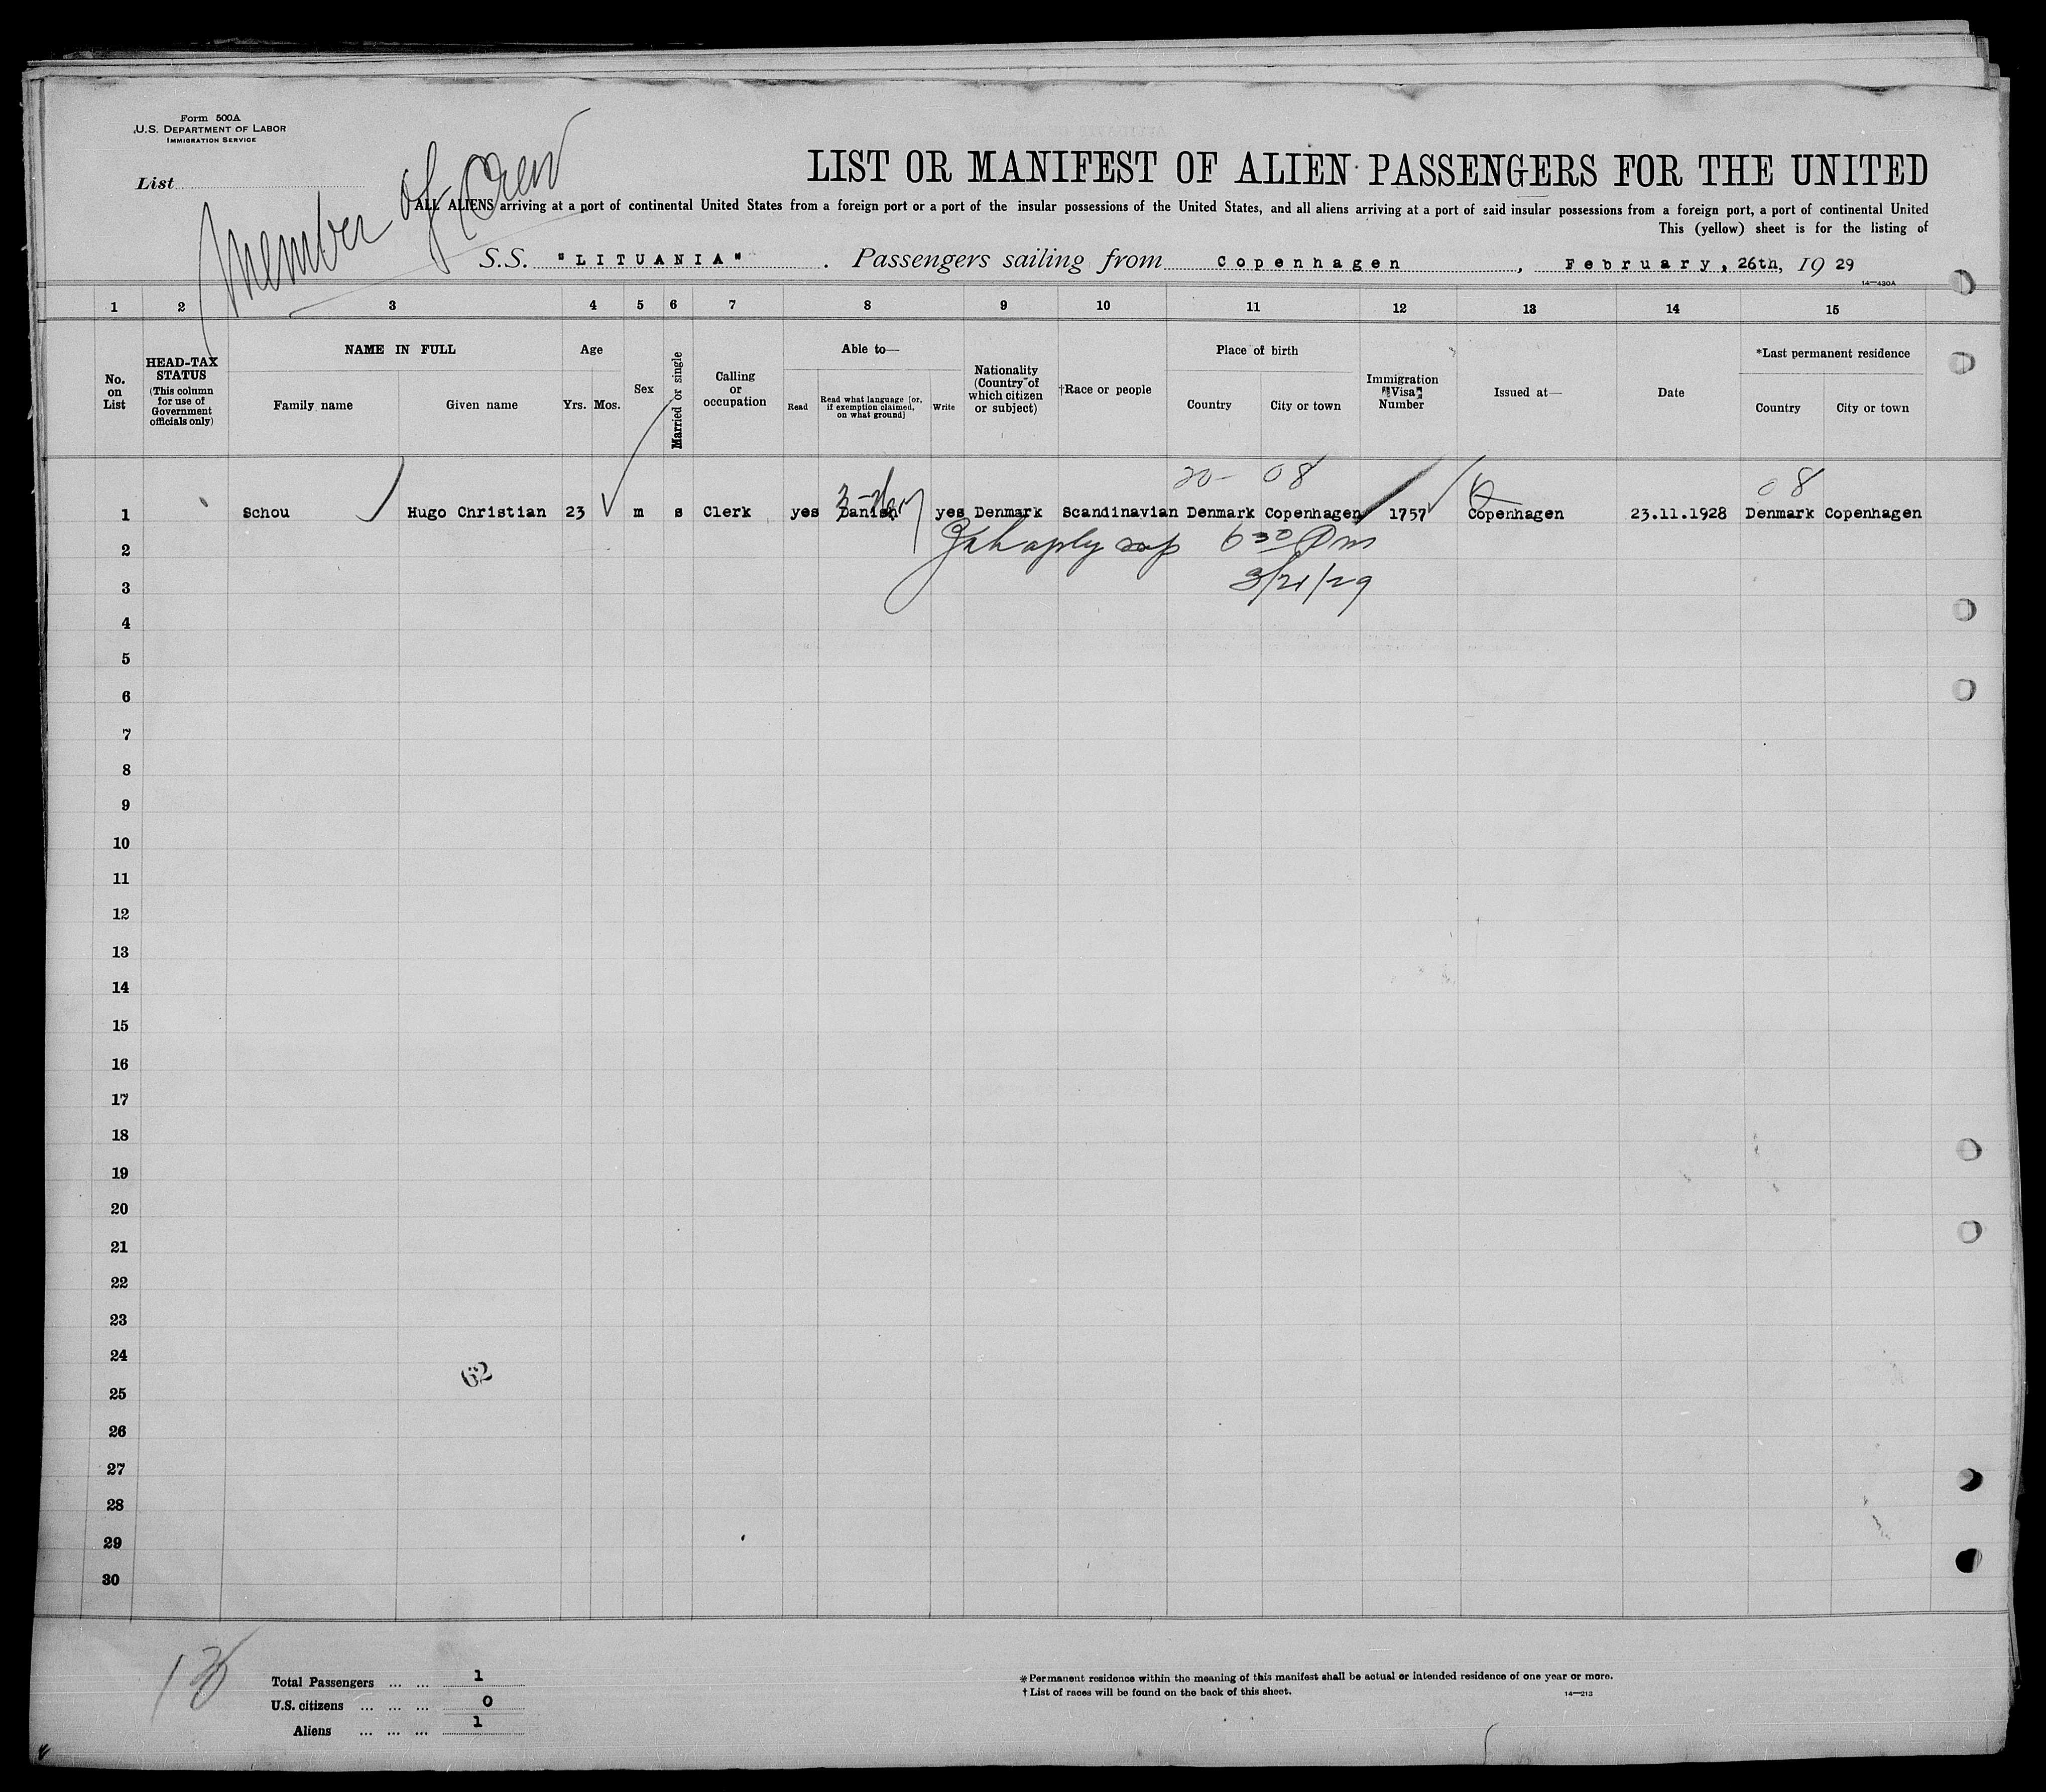 Form 500A
U.S. DEPARTMENT OF LABOR
IMMIGRATION SERVICE
List
Member of Crew
LIST OR MANIFEST OF ALIEN PASSENGERS FOR THE UNITED
ALL ALIENS arriving at a port of continental United States from a foreign port or a port of the insular possessions of the United States, and all aliens arriving at a port of said insular possessions from a foreign port, a port of continental United
This (yellow) sheet is for the listing of
S.S. "LITUANIA". Passengers sailing from Copenhagen, February, 26th, 19 29
14—430A
1 2 3 4 5 6 7 8 9 10 11 12 13 14 15
No. on List
HEAD-TAX STATUS
(This column for use of Government officials only)
NAME IN FULL
Family name Given name
Age
Yrs. Mos.
Sex
Married or single
Calling or occupation
Able to—
Read
Read what language [or, if exemption claimed, on what ground]
Write
Nationality (Country of which citizen or subject)
†Race or people
Place of birth
Country City or town
Immigration Visa Number
Issued at—
Date
*Last permanent residence
Country City or town
20- 08 08
1 Schou Hugo Christian 23 m s Clerk yes Danish yes Denmark Scandinavian Denmark Copenhagen 1757 Copenhagen 23.11.1928 Denmark Copenhagen
2 6 30 Pm
3 3/21/29
4
5
6
7
8
9
10
11
12
13
14
15
16
17
18
19
20
21
22
23
24
62
25
26
27
28
29
30
Total Passengers ... ... 1
U.S. citizens ... ... ... 0
Aliens ... ... ... 1
* Permanent residence within the meaning of this manifest shall be actual or intended residence of one year or more.
† List of races will be found on the back of this sheet.
14—213